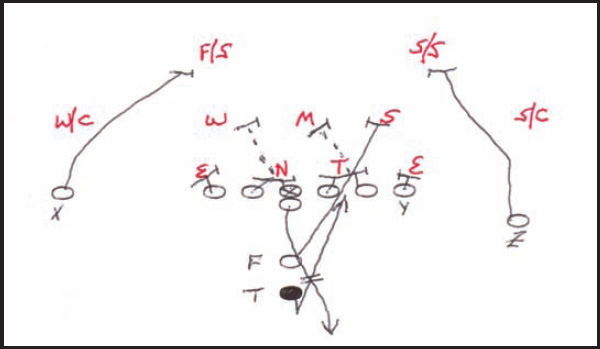 F/S S/S
W/C W M S S/C
E N T E
X Y Z
F
T